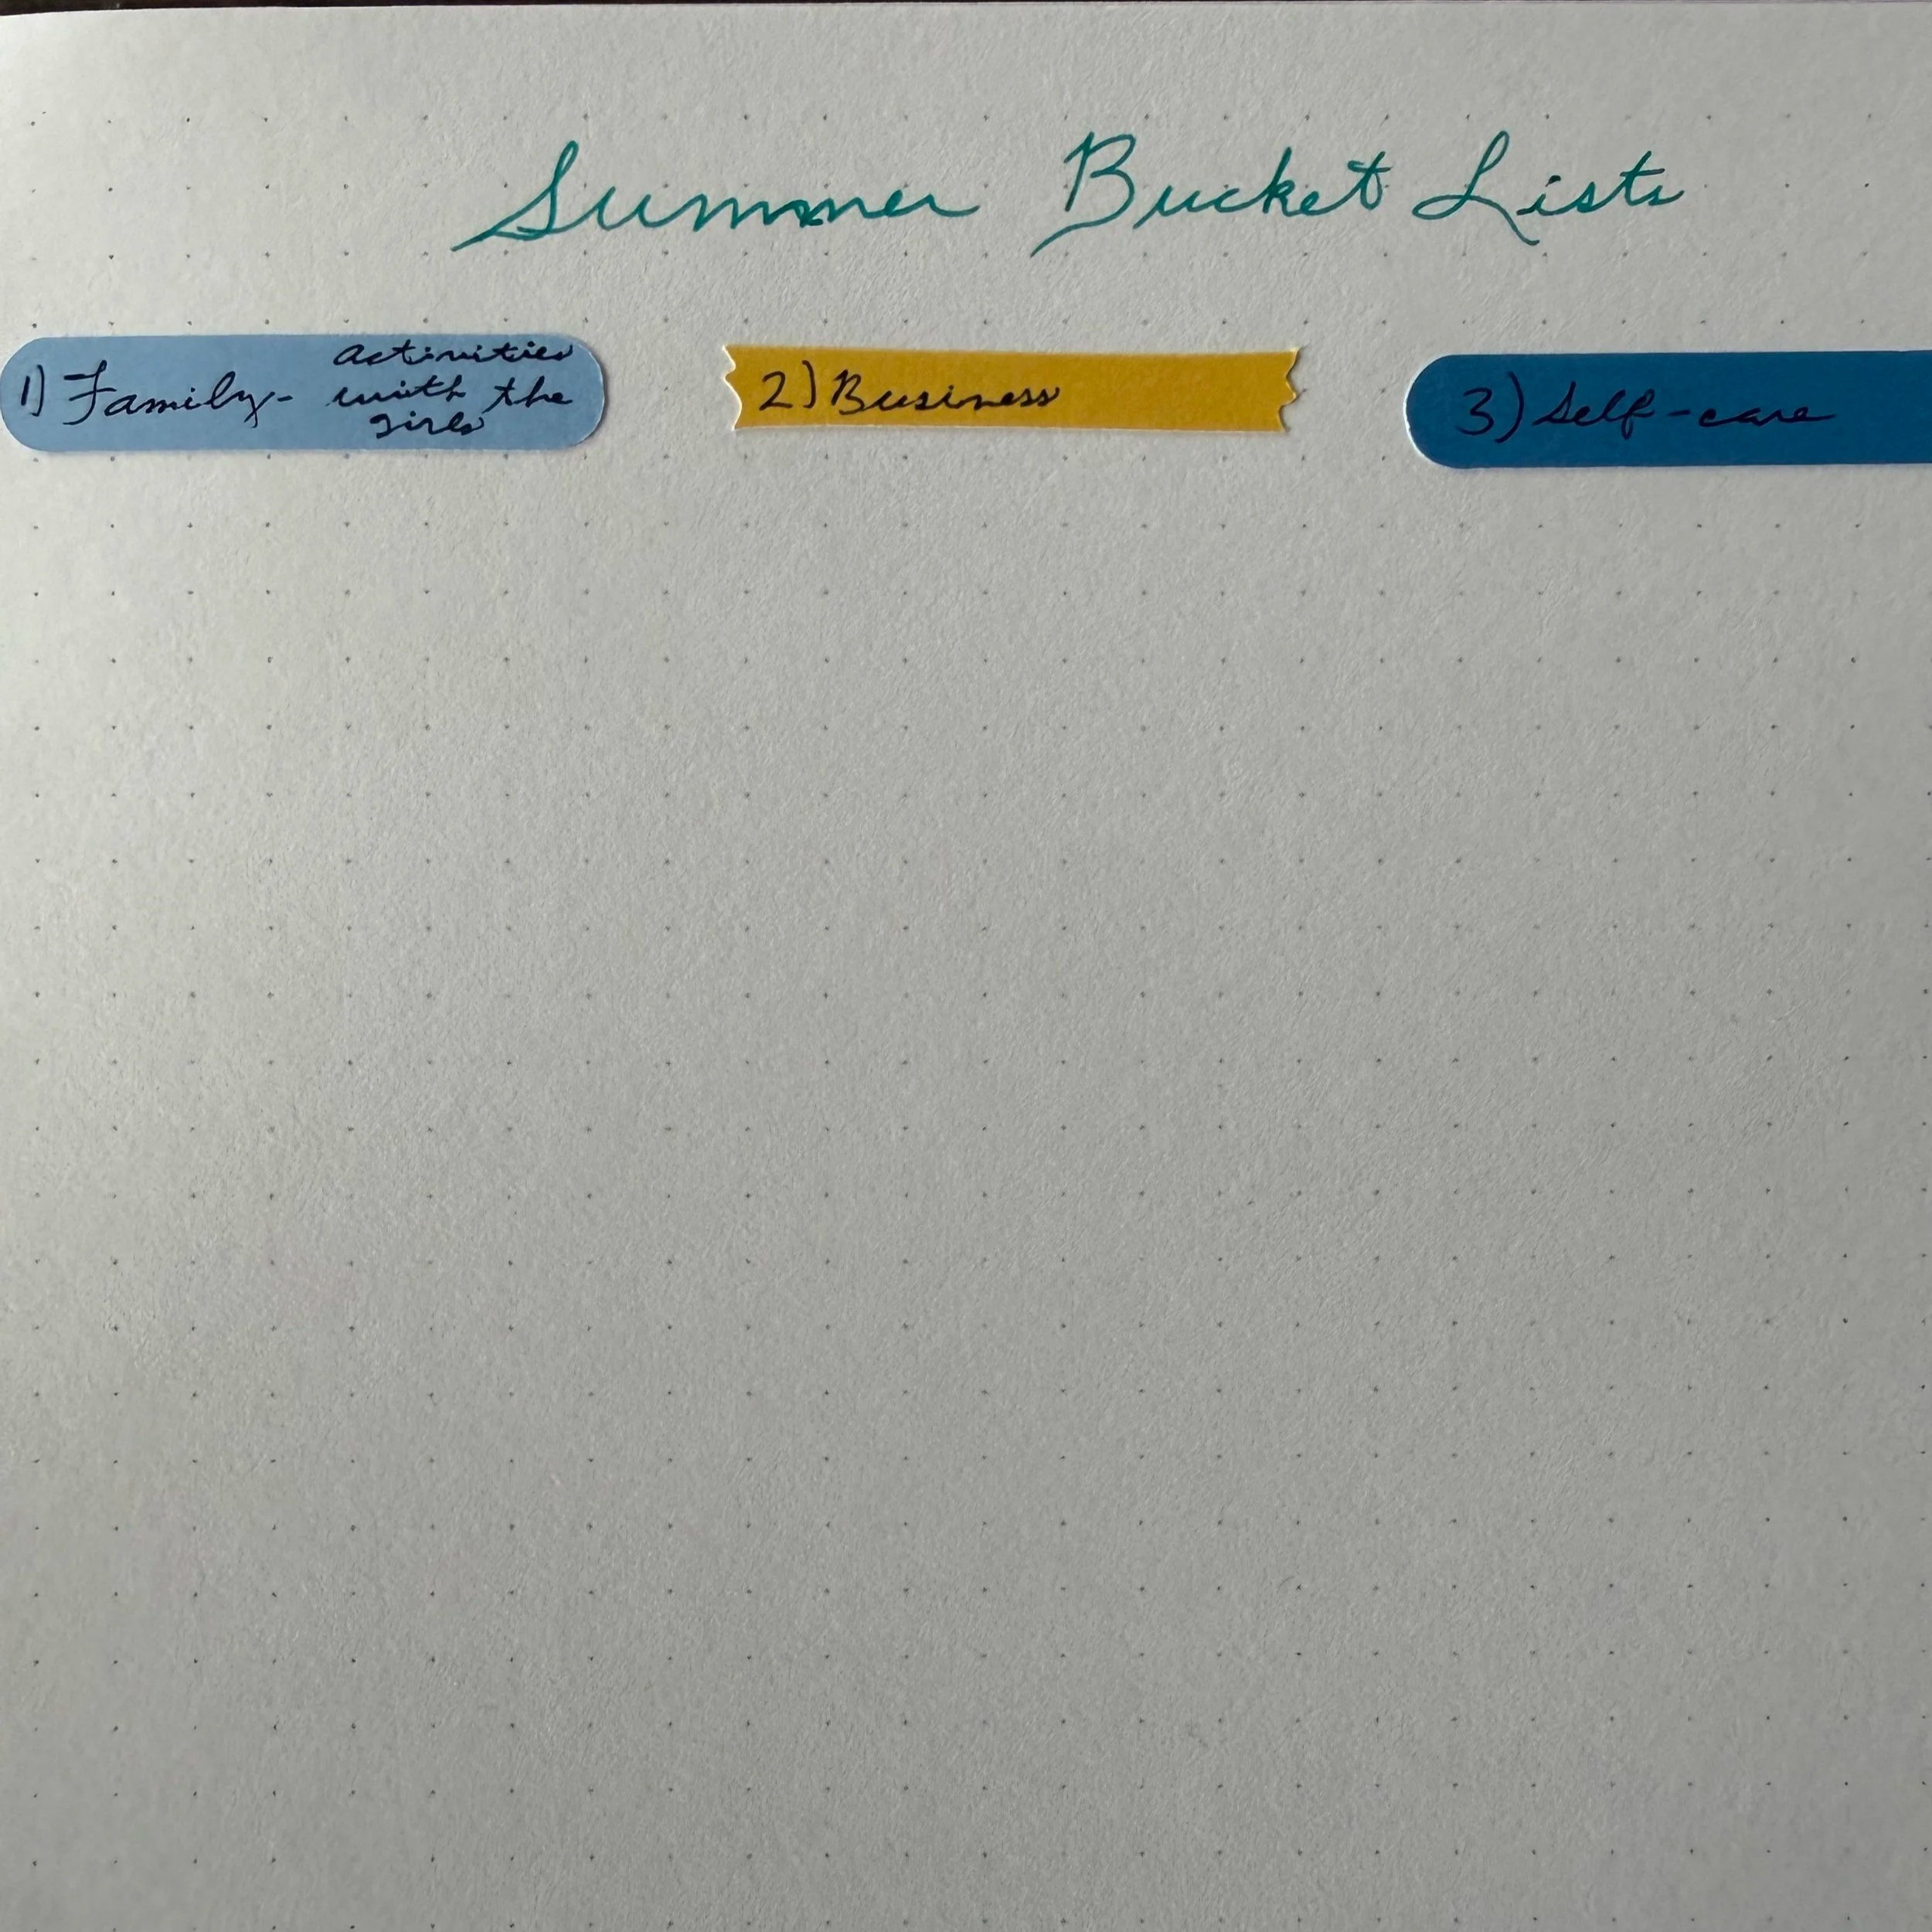 Summer Bucket Lists
1) Family - activities
with the
girls
2) Business
3) Self-care